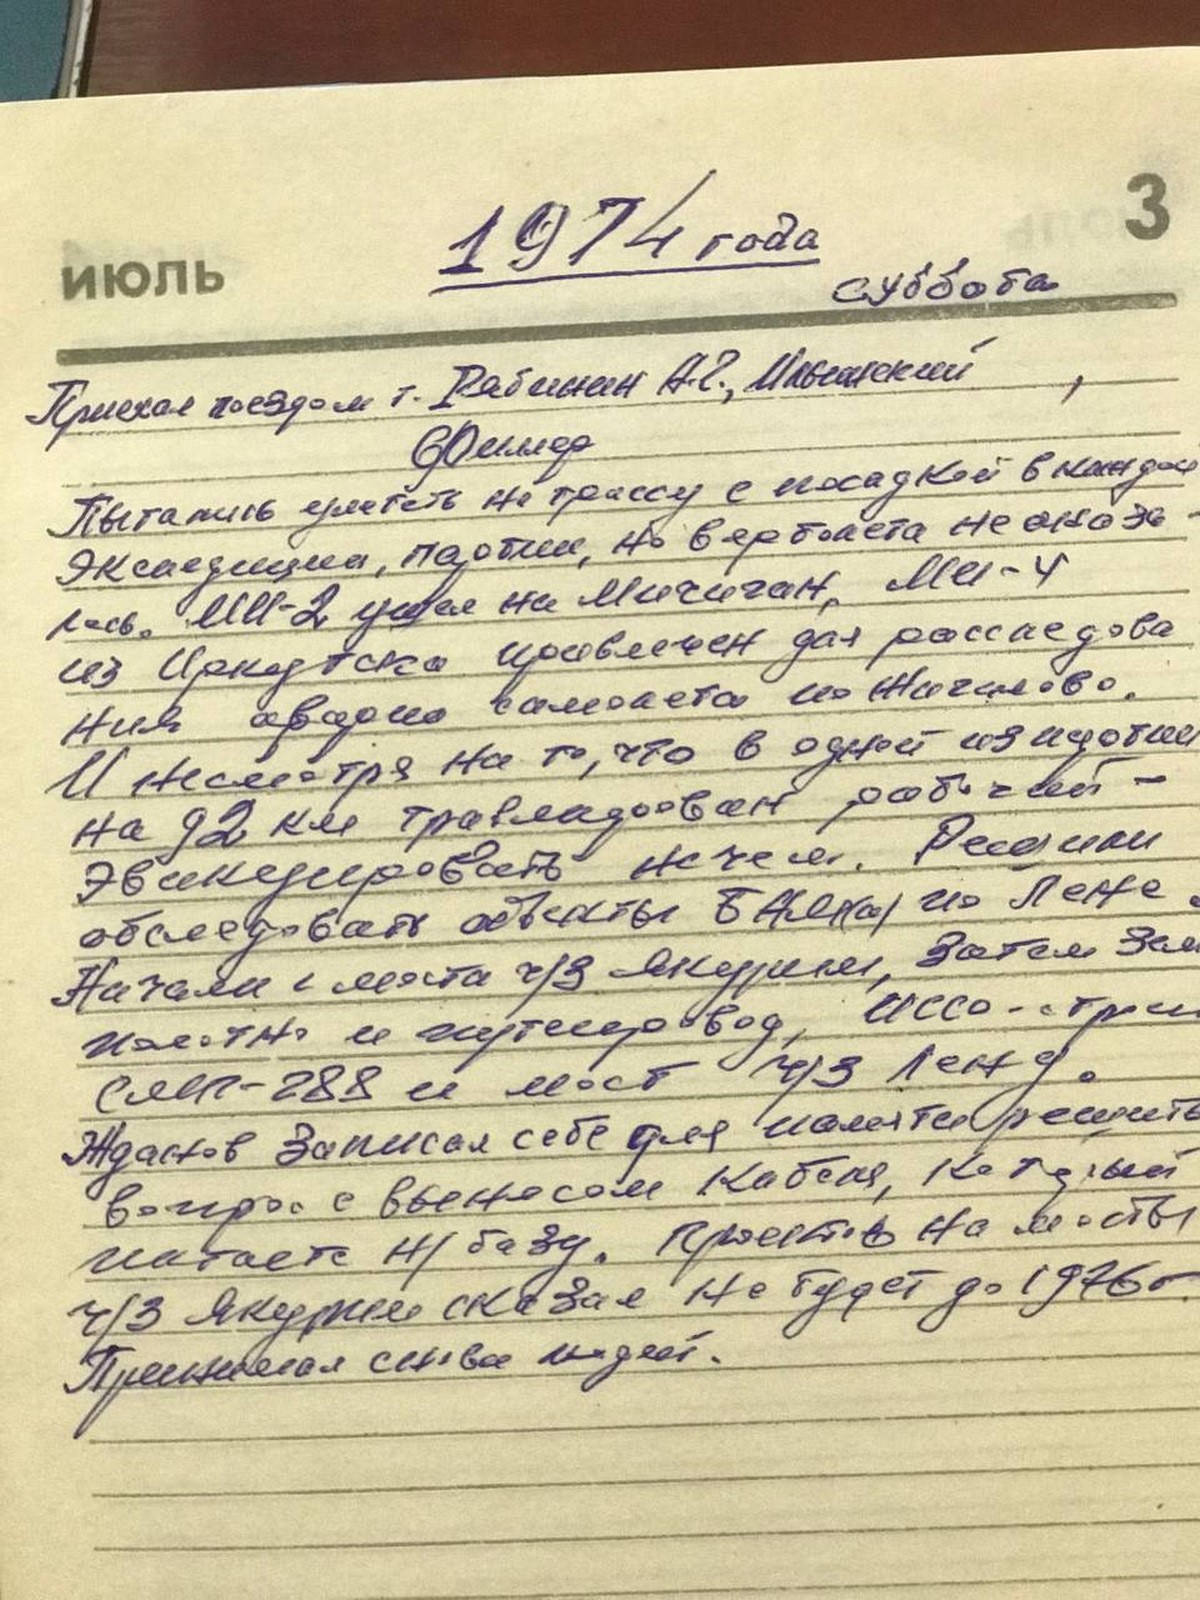 3
ИЮЛЬ
1974 года
суббота
Приехал поездом т. Рябинин А.Г., Ильинский,
Филлер
Пытались улететь на трассу с посадкой в каждой
экспедиции, партии, но вертолета не оказа-
лось. МИ-2 ушел на Мичиган, МИ-4
из Иркутска привлечен для расследова
ния аварии самолета по Жигалово.
И несмотря на то, что в одной из партии
на 92 км травмирован рабочий -
эвакуировать нечем. Решили
обследовать объекты БАМ(а) по Лене.
Начали с моста ч/з Якурим, затем зем
полотно и путепровод,
СМП-288 и мост ч/з Лену.
Жданов записал себе для памяти решить
вопрос с выносом кабеля, который
питает н/базу. Проектов на мосты
ч/з Якурим сказал не будет до 1976г.
Принимал снова людей.